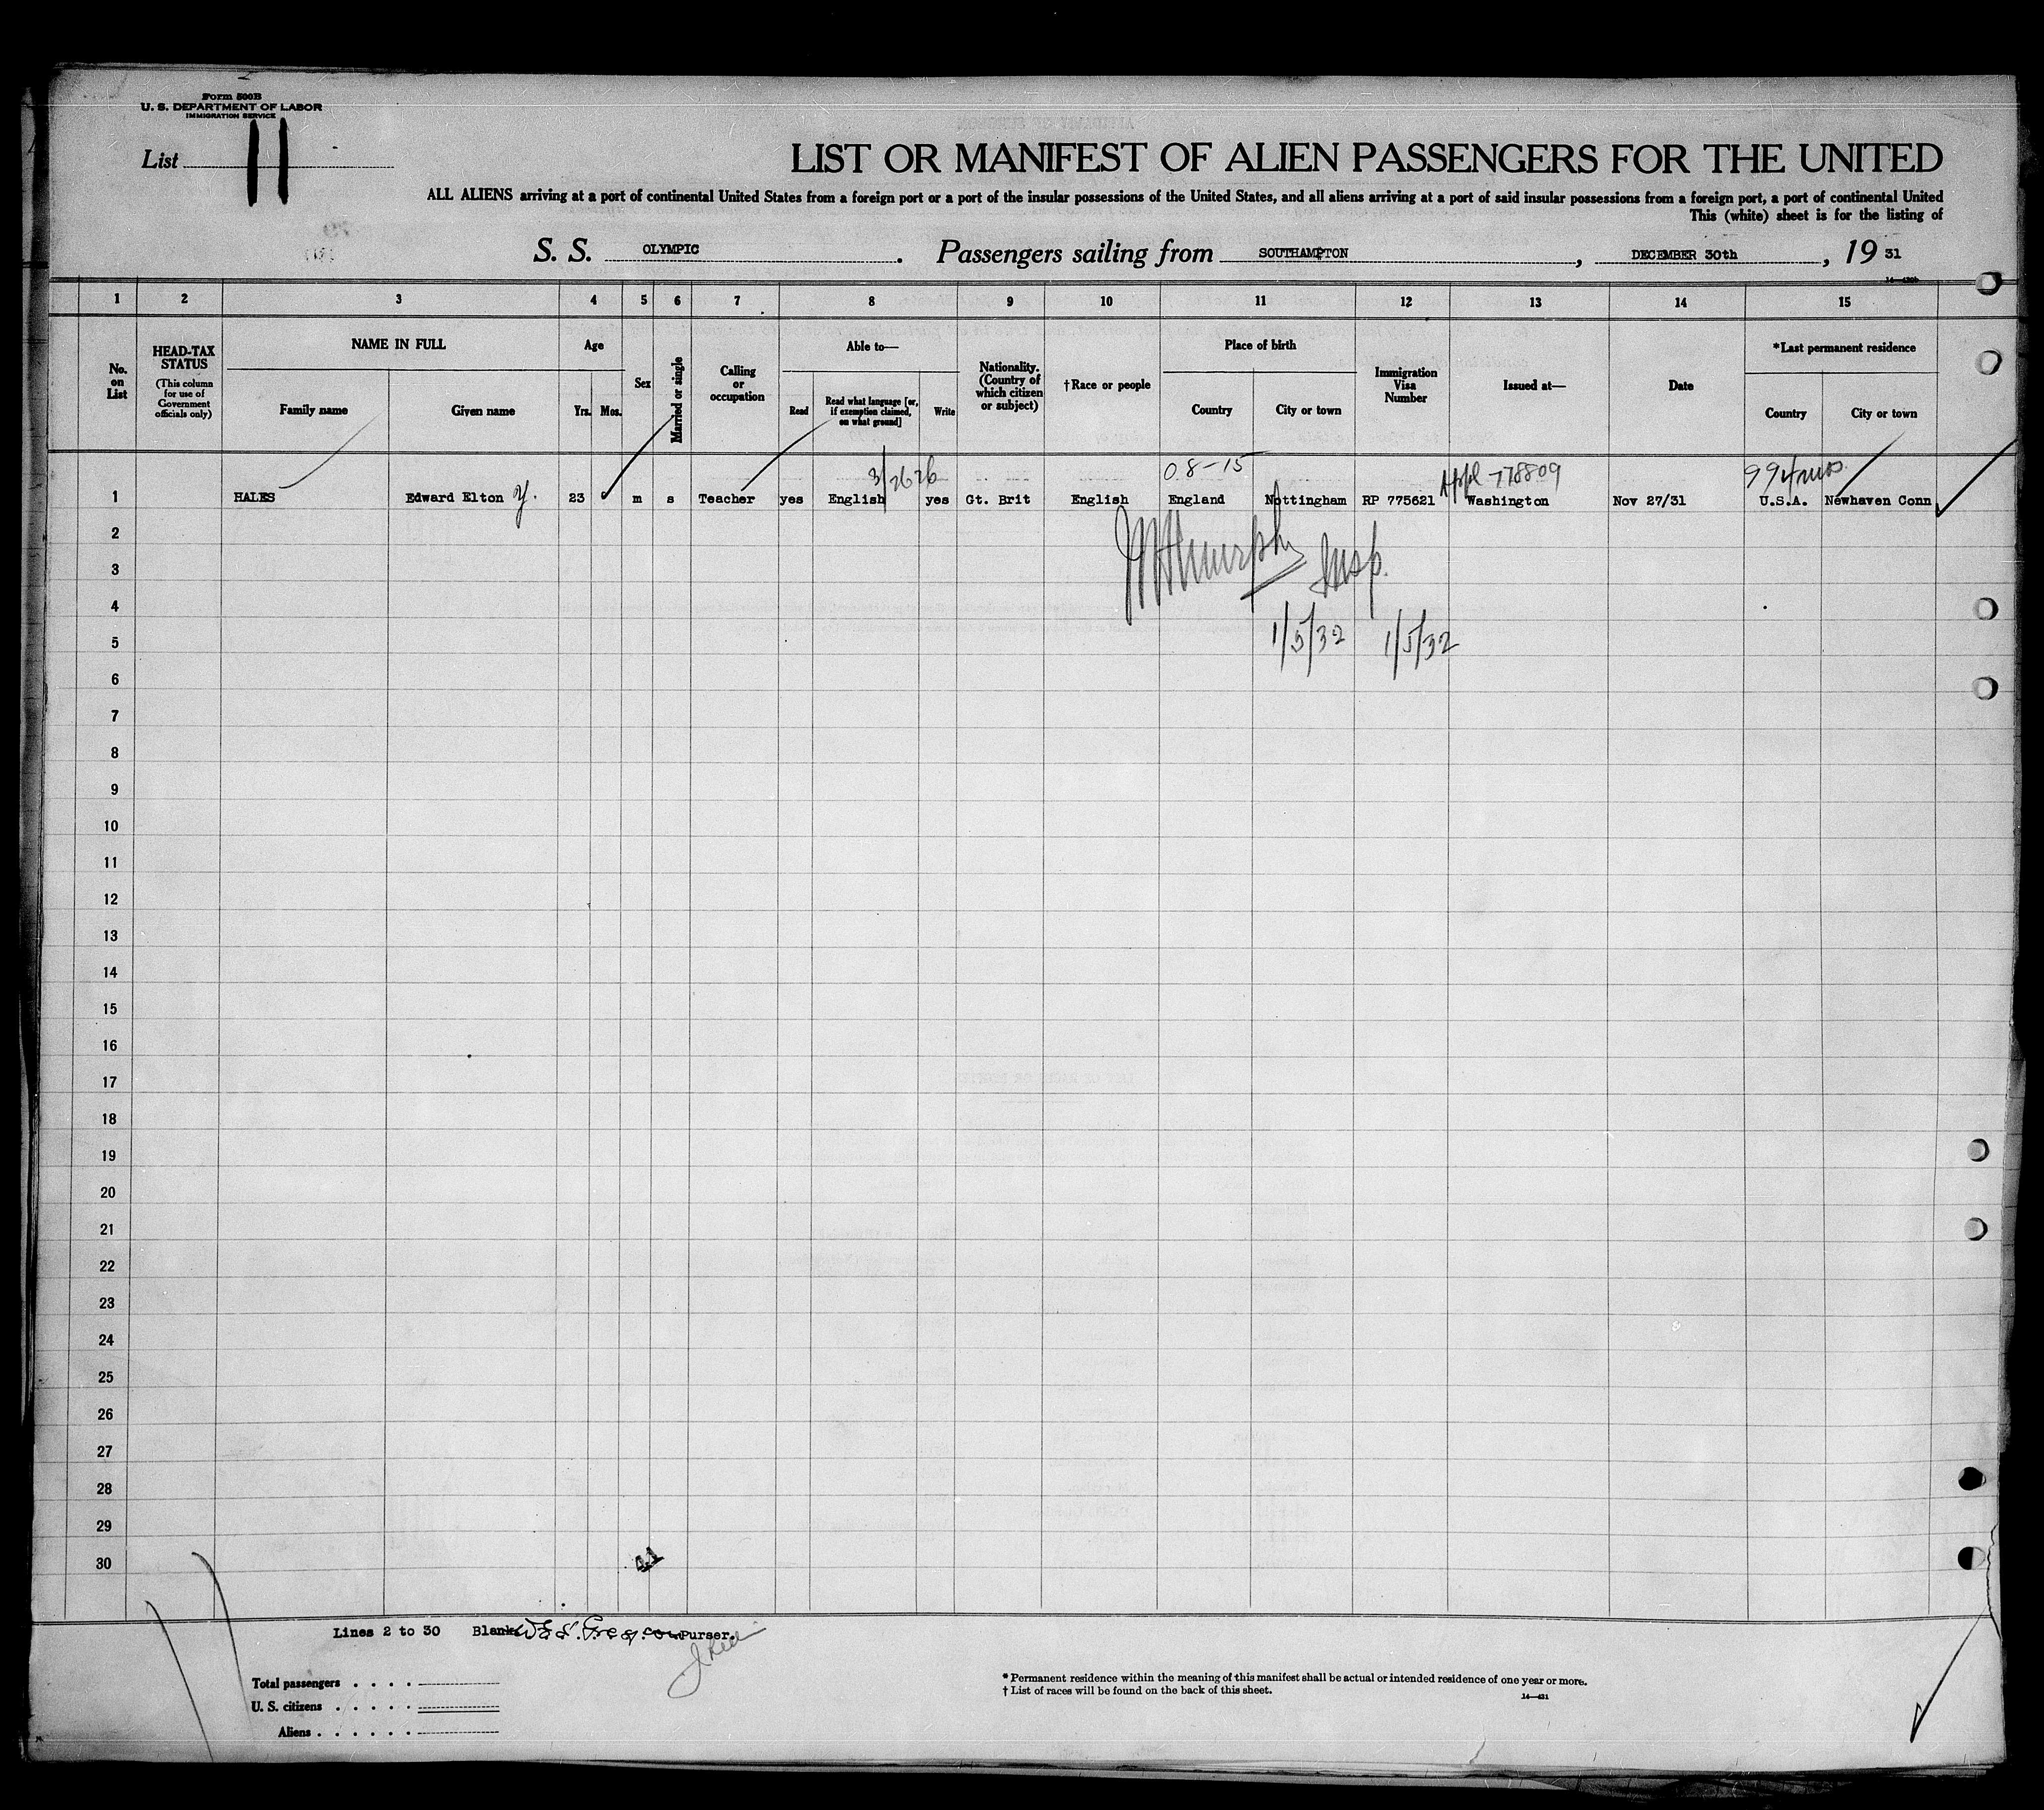 Form 500B
U. S. DEPARTMENT OF LABOR
IMMIGRATION SERVICE
List 11
LIST OR MANIFEST OF ALIEN PASSENGERS FOR THE UNITED
ALL ALIENS arriving at a port of continental United States from a foreign port or a port of the insular possessions of the United States, and all aliens arriving at a port of said insular possessions from a foreign port, a port of continental United
This (white) sheet is for the listing of
S. S. OLYMPIC. Passengers sailing from SOUTHAMPTON, DECEMBER 30th, 19 31
1 2 3 4 5 6 7 8 9 10 11 12 13 14 15
No. on List
HEAD-TAX STATUS
(This column for use of Government officials only)
NAME IN FULL
Family name
Given name
Age
Yrs. Mos.
Sex
Married or single
Calling or occupation
Able to—
Read
Read what language [or, if exemption claimed, on what ground]
Write
Nationality. (Country of which citizen or subject)
†Race or people
Place of birth
Country
City or town
Immigration Visa Number
Issued at—
Date
*Last permanent residence
Country
City or town
3/2626 08-15 Appl 778809
1 HALES Edward Elton Y. 23 m s Teacher yes English yes Gt. Brit English England Nottingham RP 775621 Washington Nov 27/31 U.S.A. Newhaven Conn
2
Murphy Insp.
3
4
1/5/32 1/5/32
5
6
7
8
9
10
11
12
13
14
15
16
17
18
19
20
21
22
23
24
25
26
27
28
29
30
41
Lines 2 to 30 Blank Purser.
Total passengers . . . .
U. S. citizens . . . . .
Aliens . . . . . .
* Permanent residence within the meaning of this manifest shall be actual or intended residence of one year or more.
† List of races will be found on the back of this sheet.
14—421